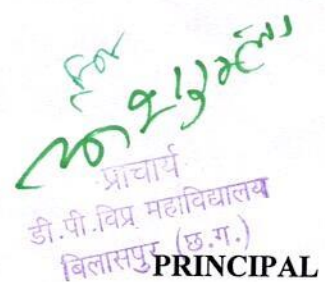 for
प्राचार्य
डी.पी.विप्र महाविद्यालय
बिलासपुर (छ.ग.)
PRINCIPAL